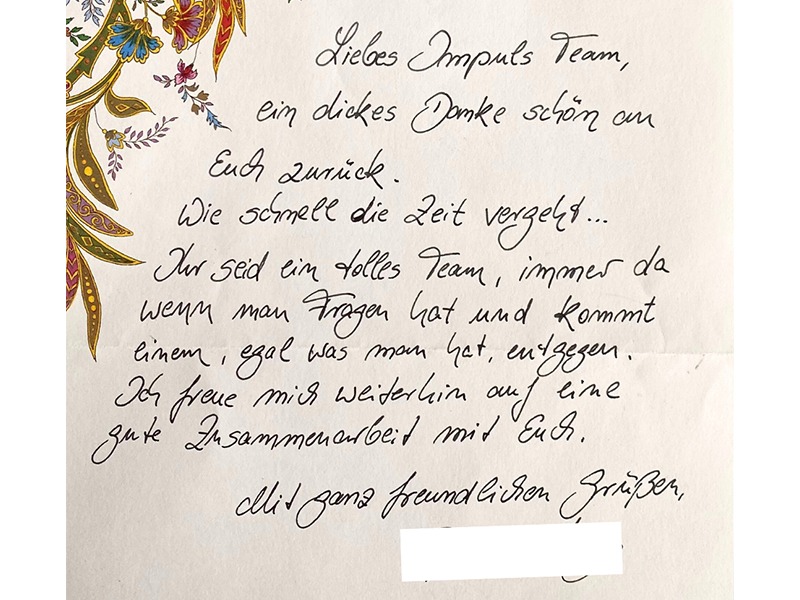 Liebes Impuls Team,
ein dickes Danke schön an
Euch zurück.
Wie schnell die Zeit vergeht...
Ihr seid ein tolles Team, immer da
wenn man Fragen hat und kommt
einem, egal was man hat, entgegen.
Ich freue mich weiterhin auf eine
gute Zusammenarbeit mit Euch.
Mit ganz freundlichen Grüßen,